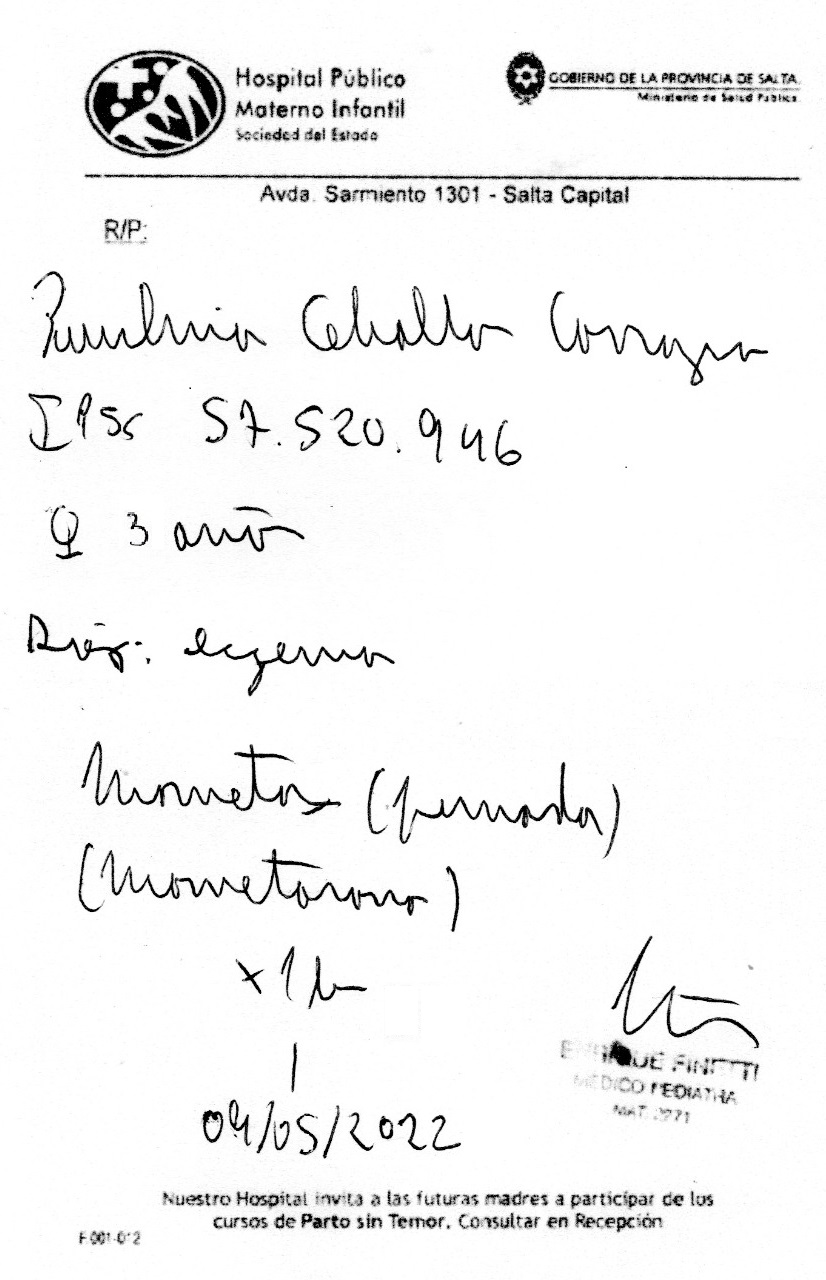 Hospital Público
Materno Infantil
Sociedad del Estado
GOBIERNO DE LA PROVINCIA DE SALTA
Ministerio de Salud Pública
Avda. Sarmiento 1301 - Salta Capital
R/P:
Ceballos
IPSS 57.520.946
♀ 3 años
Diag: eczema
Mometax (pomada)
(Mometasona)
x 1
09/05/2022
ENRIQUE FINETTI
MEDICO PEDIATRA
MAT.
Nuestro Hospital invita a las futuras madres a participar de los
cursos de Parto sin Temor. Consultar en Recepción
F-001-012